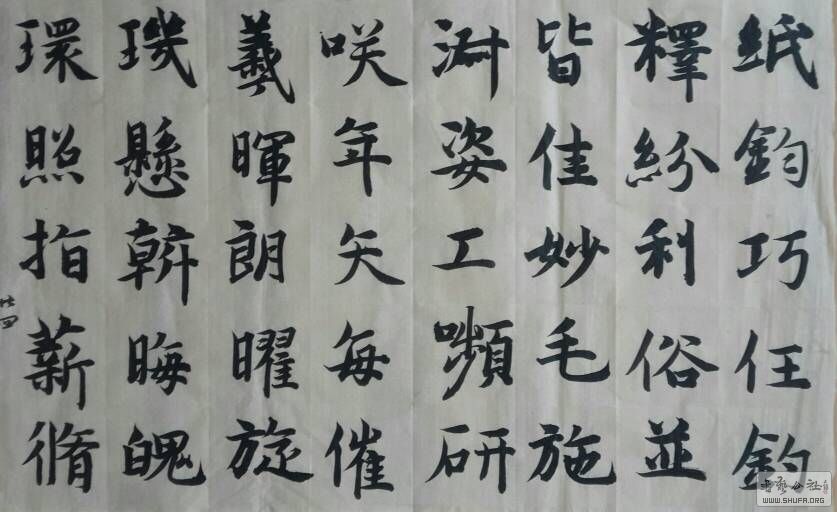 紙鈞巧任釣
釋紛利俗並
皆佳妙毛施
淵姿工嚬研
咲年矢每催
羲暉朗曜旋
璣懸斡晦魄
環照指薪脩
廿四
WWW.SHUFA.ORG